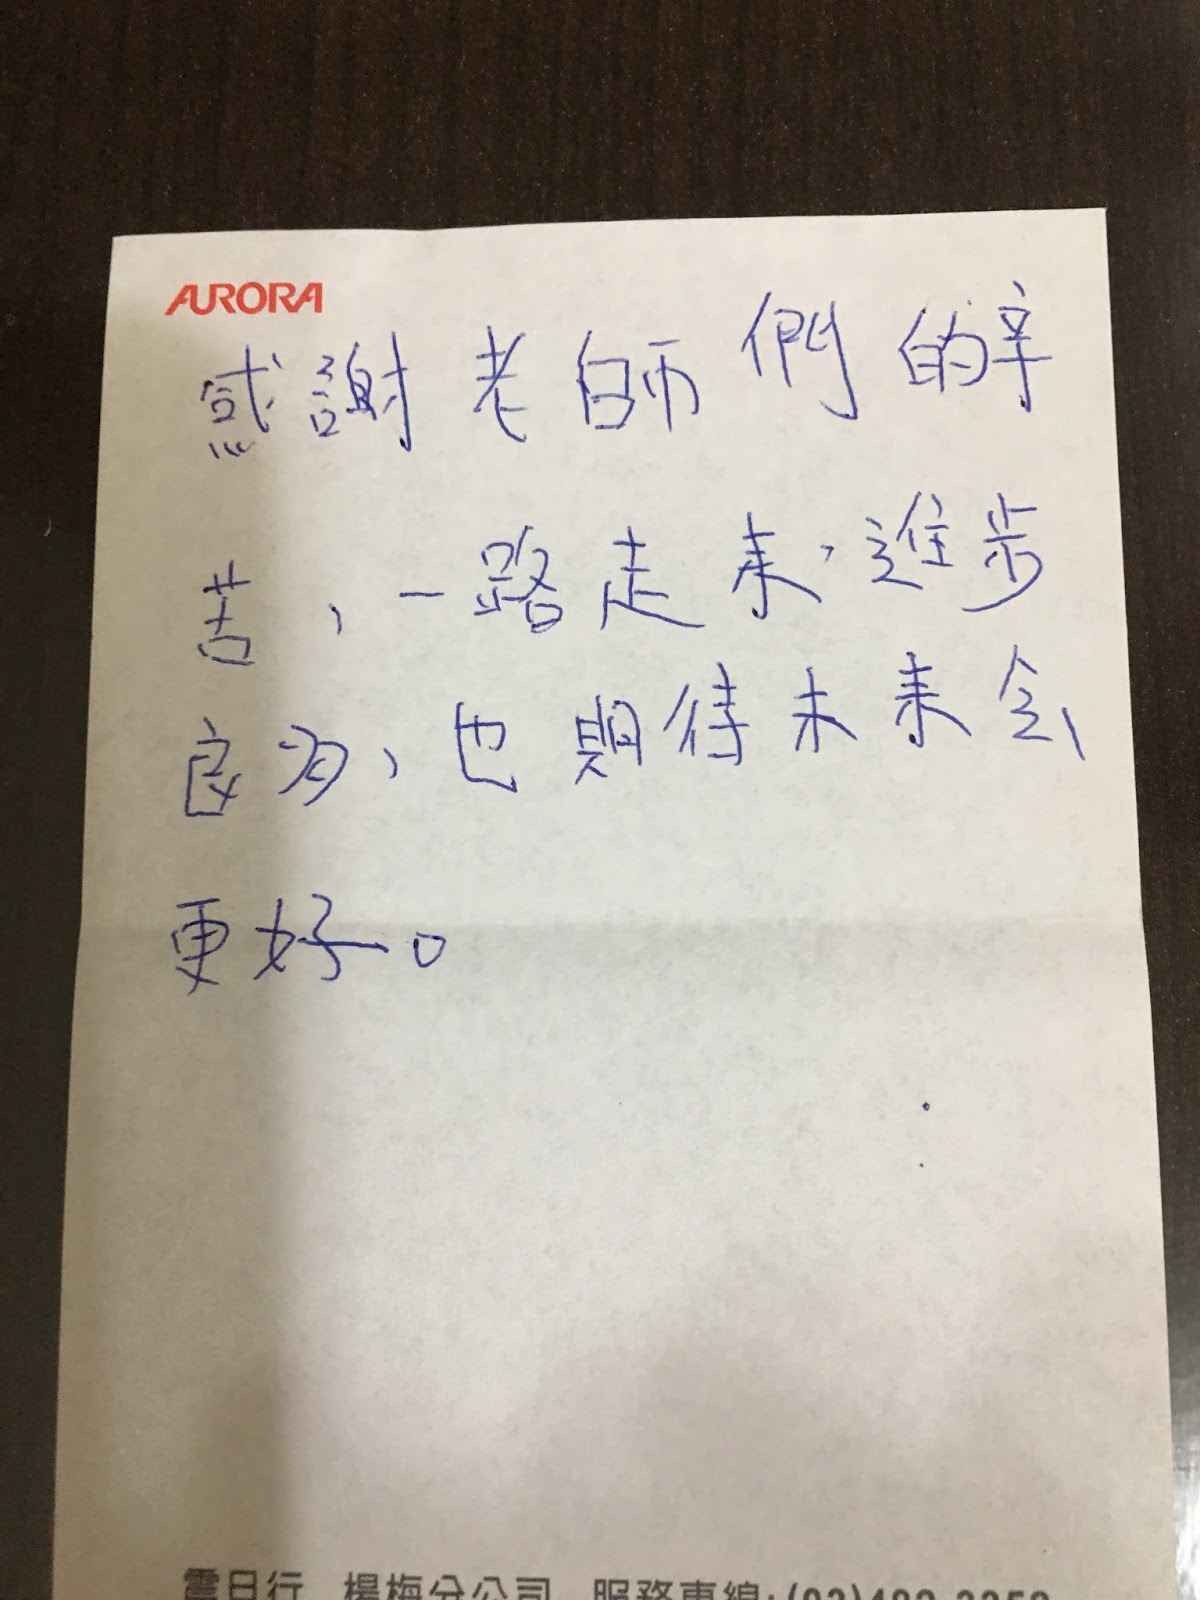 AURORA
感謝老師們的辛
苦，一路走来，進步
良多，也期待未来会
更好。
震旦行 楊梅分公司 服務專線:(03)482-3352